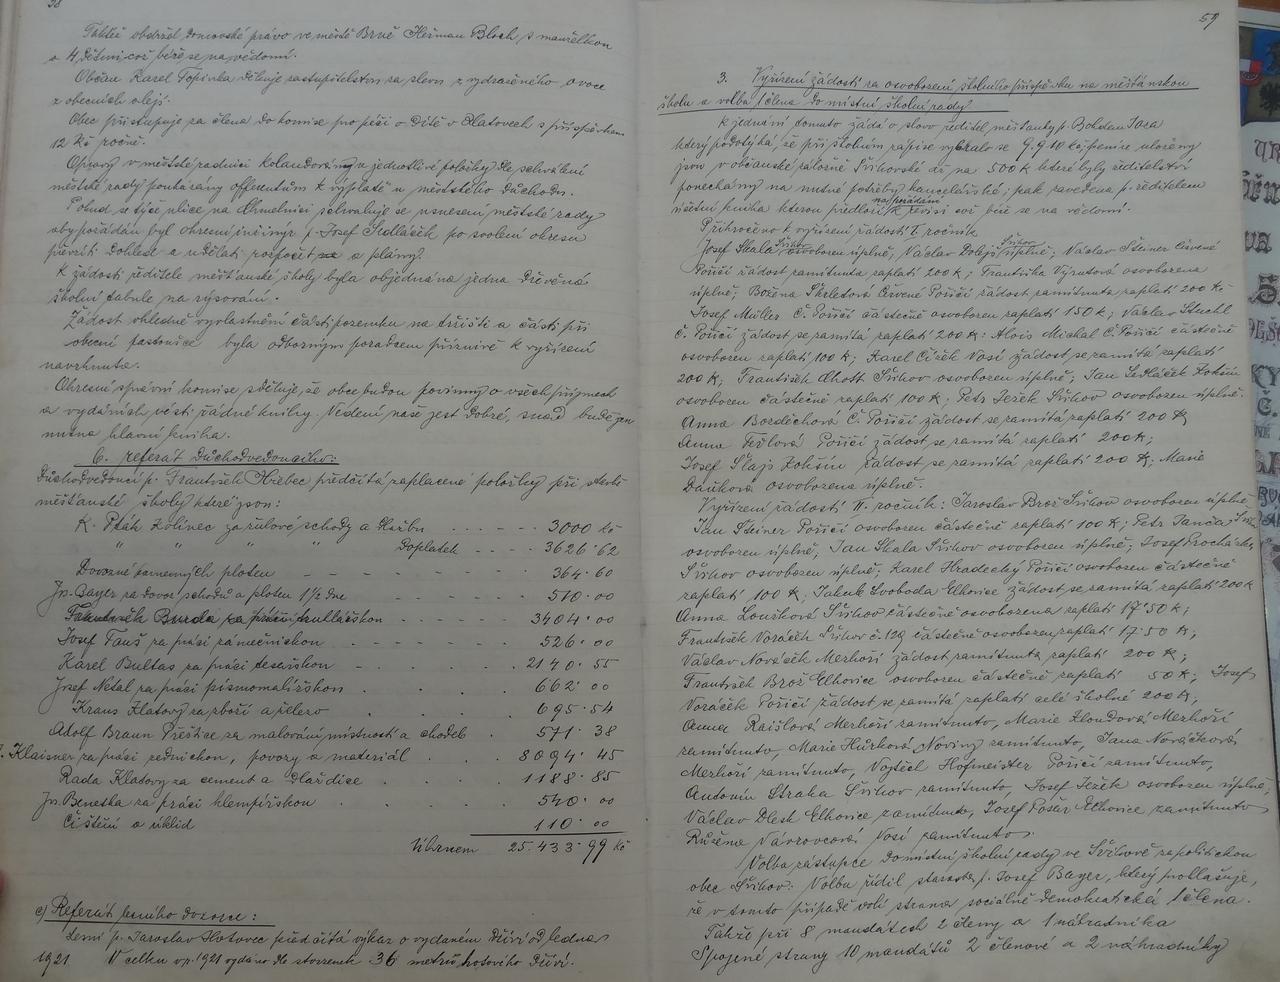 58
Taktéž obdržel domovské právo ve městě Brně Heřman Bloch, s manželkou
a 4 dětmi, což béře se na vědomí.
Občan Karel Topinka děkuje zastupitelstvu za slevu z vydraženého ovoce
z obecních alejí.
Obec přistupuje za člena do komise pro péči o dítě v Klatovech s příspěvkem
12 Kč ročně.
Opravy v městské radnici kolaudovány a jednotlivé položky dle schválení
městské rady poukázány offerentům k výplatě u městského důchodu.
Pokud se týče ulice na Chmelnici schvaluje se usnesení městské rady
aby požádán byl okresní inžinýr p. Josef Sedláček po svolení okresu
převzíti dohled a udělati rozpočet a plány.
K žádosti ředitele měšťanské školy byla objednána jedna dřevěná
školní tabule na rýsování.
Žádost ohledně vyvlastnění části pozemku na tržišti a části při
obecní pastoušce byla odborným poradcem příznivě k vyřízení
navrhnuta.
Okresní správní komise sděluje, že obce budou povinny o všech příjmech
a vydáních vésti řádné knihy. Vedení naše jest dobré, snad bude jen
nutna hlavní kniha.
6. referát důchodvedoucího:
Důchodvedoucí p. František Hřebec předčítá zaplacené položky při stavbě
měšťanské školy které jsou:
K. Pták Zvlínec za žulové schody a dlažbu - - - - - 3000 Kč
" " " " Doplatek - - - - 3626·62
Dovozné kamenných ploten - - - - - - - 364·60
Jos. Bayer za dovoz schodů a ploten 1 1/2 dne - - - - 510·00
František Burda za práci truhlářskou - - - - - 3404·00
Josef Tauš za práci zámečnickou - - - - - 526·00
Karel Bultas za práci tesařskou - - - - - 2140·55
Josef Netal za práci písmomalířskou . . . . 662·00
Kraus Klatovy za zboží a železo . . . . 695·54
Adolf Braun Přeštice za malování místností a chodeb . 571·38
J. Klaisner za práci zednickou, povozy a materiál . . 8094·45
Rada Klatovy za cement a dlaždice . . . . 1188·85
Jos. Benetka za práci klempířskou . . . . 540·00
Čištění a úklid 110·00
Úhrnem 25.433·99 Kč
c) Referát lesního dozorce:
Lesní p. Jaroslav Hotovec předčítá výkaz o vydaném dříví od ledna
1921 V celku v r. 1921 vydáno dle stvrzenek 36 metrů hotového dříví.
59
3. Vyřízení žádostí za osvobození školního příspěvku na měšťanskou
školu a volba 1 člena do místní školní rady
K jednání tomuto žádá o slovo ředitel měšťanky p. Bohdan Jára
který podotýká, že při školním zápise vybralo se
jsou v občanské záložně Švihovské až na 500 K které byly ředitelství
ponechány na nutné potřeby kancelářské; pak zavedena p. ředitelem
účetní kniha kterou předloží na požádání k revisi což béře se na vědomí.
Přikročeno k vyřízení žádostí I. ročník
Josef Skala Švihov osvobozen úplně, Václav Dolejš Švihov úplně; Václav Steiner Červené
Poříčí žádost zamítnuta zaplatí 200 K; Františka Výrutová osvobozena
úplně; Božena Skřletová Červené Poříčí žádost zamítnuta zaplatí 200 K
Josef Müller Č. Poříčí částečně osvobozen zaplatí 150 K; Václav Stuchl
Č. Poříčí žádost se zamítá zaplatí 200 K: Alois Michal Č. Poříčí částečně
osvobozen zaplatí 100 K; Karel Čížek Vosí žádost se zamítá zaplatí
200 K; František Chott Švihov osvobozen úplně; Jan Sedláček Lhovice
osvobozen částečně zaplatí 100 K; Petr Ježek Švihov osvobozen úplně.
Anna Bozděchová Č. Poříčí žádost se zamítá zaplatí 200 K
Anna Poříčí žádost se zamítá zaplatí 200 K;
Josef Šlajs žádost se zamítá zaplatí 200 K; Marie
Daňková osvobozena úplně.
Vyřízení žádostí II. ročník: Jaroslav Brož Švihov osvobozen úplně
Jan Steiner Poříčí osvobozen částečně zaplatí 100 K; Petr Janča Švihov
osvobozen úplně, Jan Skala Švihov osvobozen úplně; Josef Procházka
Švihov osvobozen úplně; Karel Hradecký Poříčí osvobozen částečně
zaplatí 100 K; Jakub Svoboda Elhovice žádost se zamítá zaplatí 200 K
Anna Loušková Švihov částečně osvobozena zaplatí 17·50 K;
František Voráček Švihov č. 129 částečně osvobozen zaplatí 17·50 K;
Václav Nováček Mezhoří žádost zamítnuta zaplatí 200 K;
František Brož Elhovice osvobozen částečně zaplatí 50 K; Josef
Voráček Poříčí žádost se zamítá zaplatí celé školné 200 K;
Anna Raislová Mezhoří zamítnuto, Marie Mezhoří
zamítnuto, Marie Hůrková Noviny zamítnuto, Jana Nováčková
Mezhoří zamítnuto, Vojtěch Hofmeister Poříčí zamítnuto,
Antonín Straka Švihov zamítnuto, Josef Ježek osvobozen úplně;
Václav Elhovice zamítnuto, Josef Elhovice zamítnuto
Růžena Návrovcová Vosí zamítnuto.
Volba zástupce do místní školní rady ve Švihově za politickou
obec Švihov: Volbu řídil starosta p. Josef Bayer, který prohlašuje,
že v tomto případě volí strana sociálně demokratická 1 člena.
Takže při 8 mandátech 2 členy a 1 náhradníka
Spojené strany 10 mandátů 2 členové a 2 náhradníky